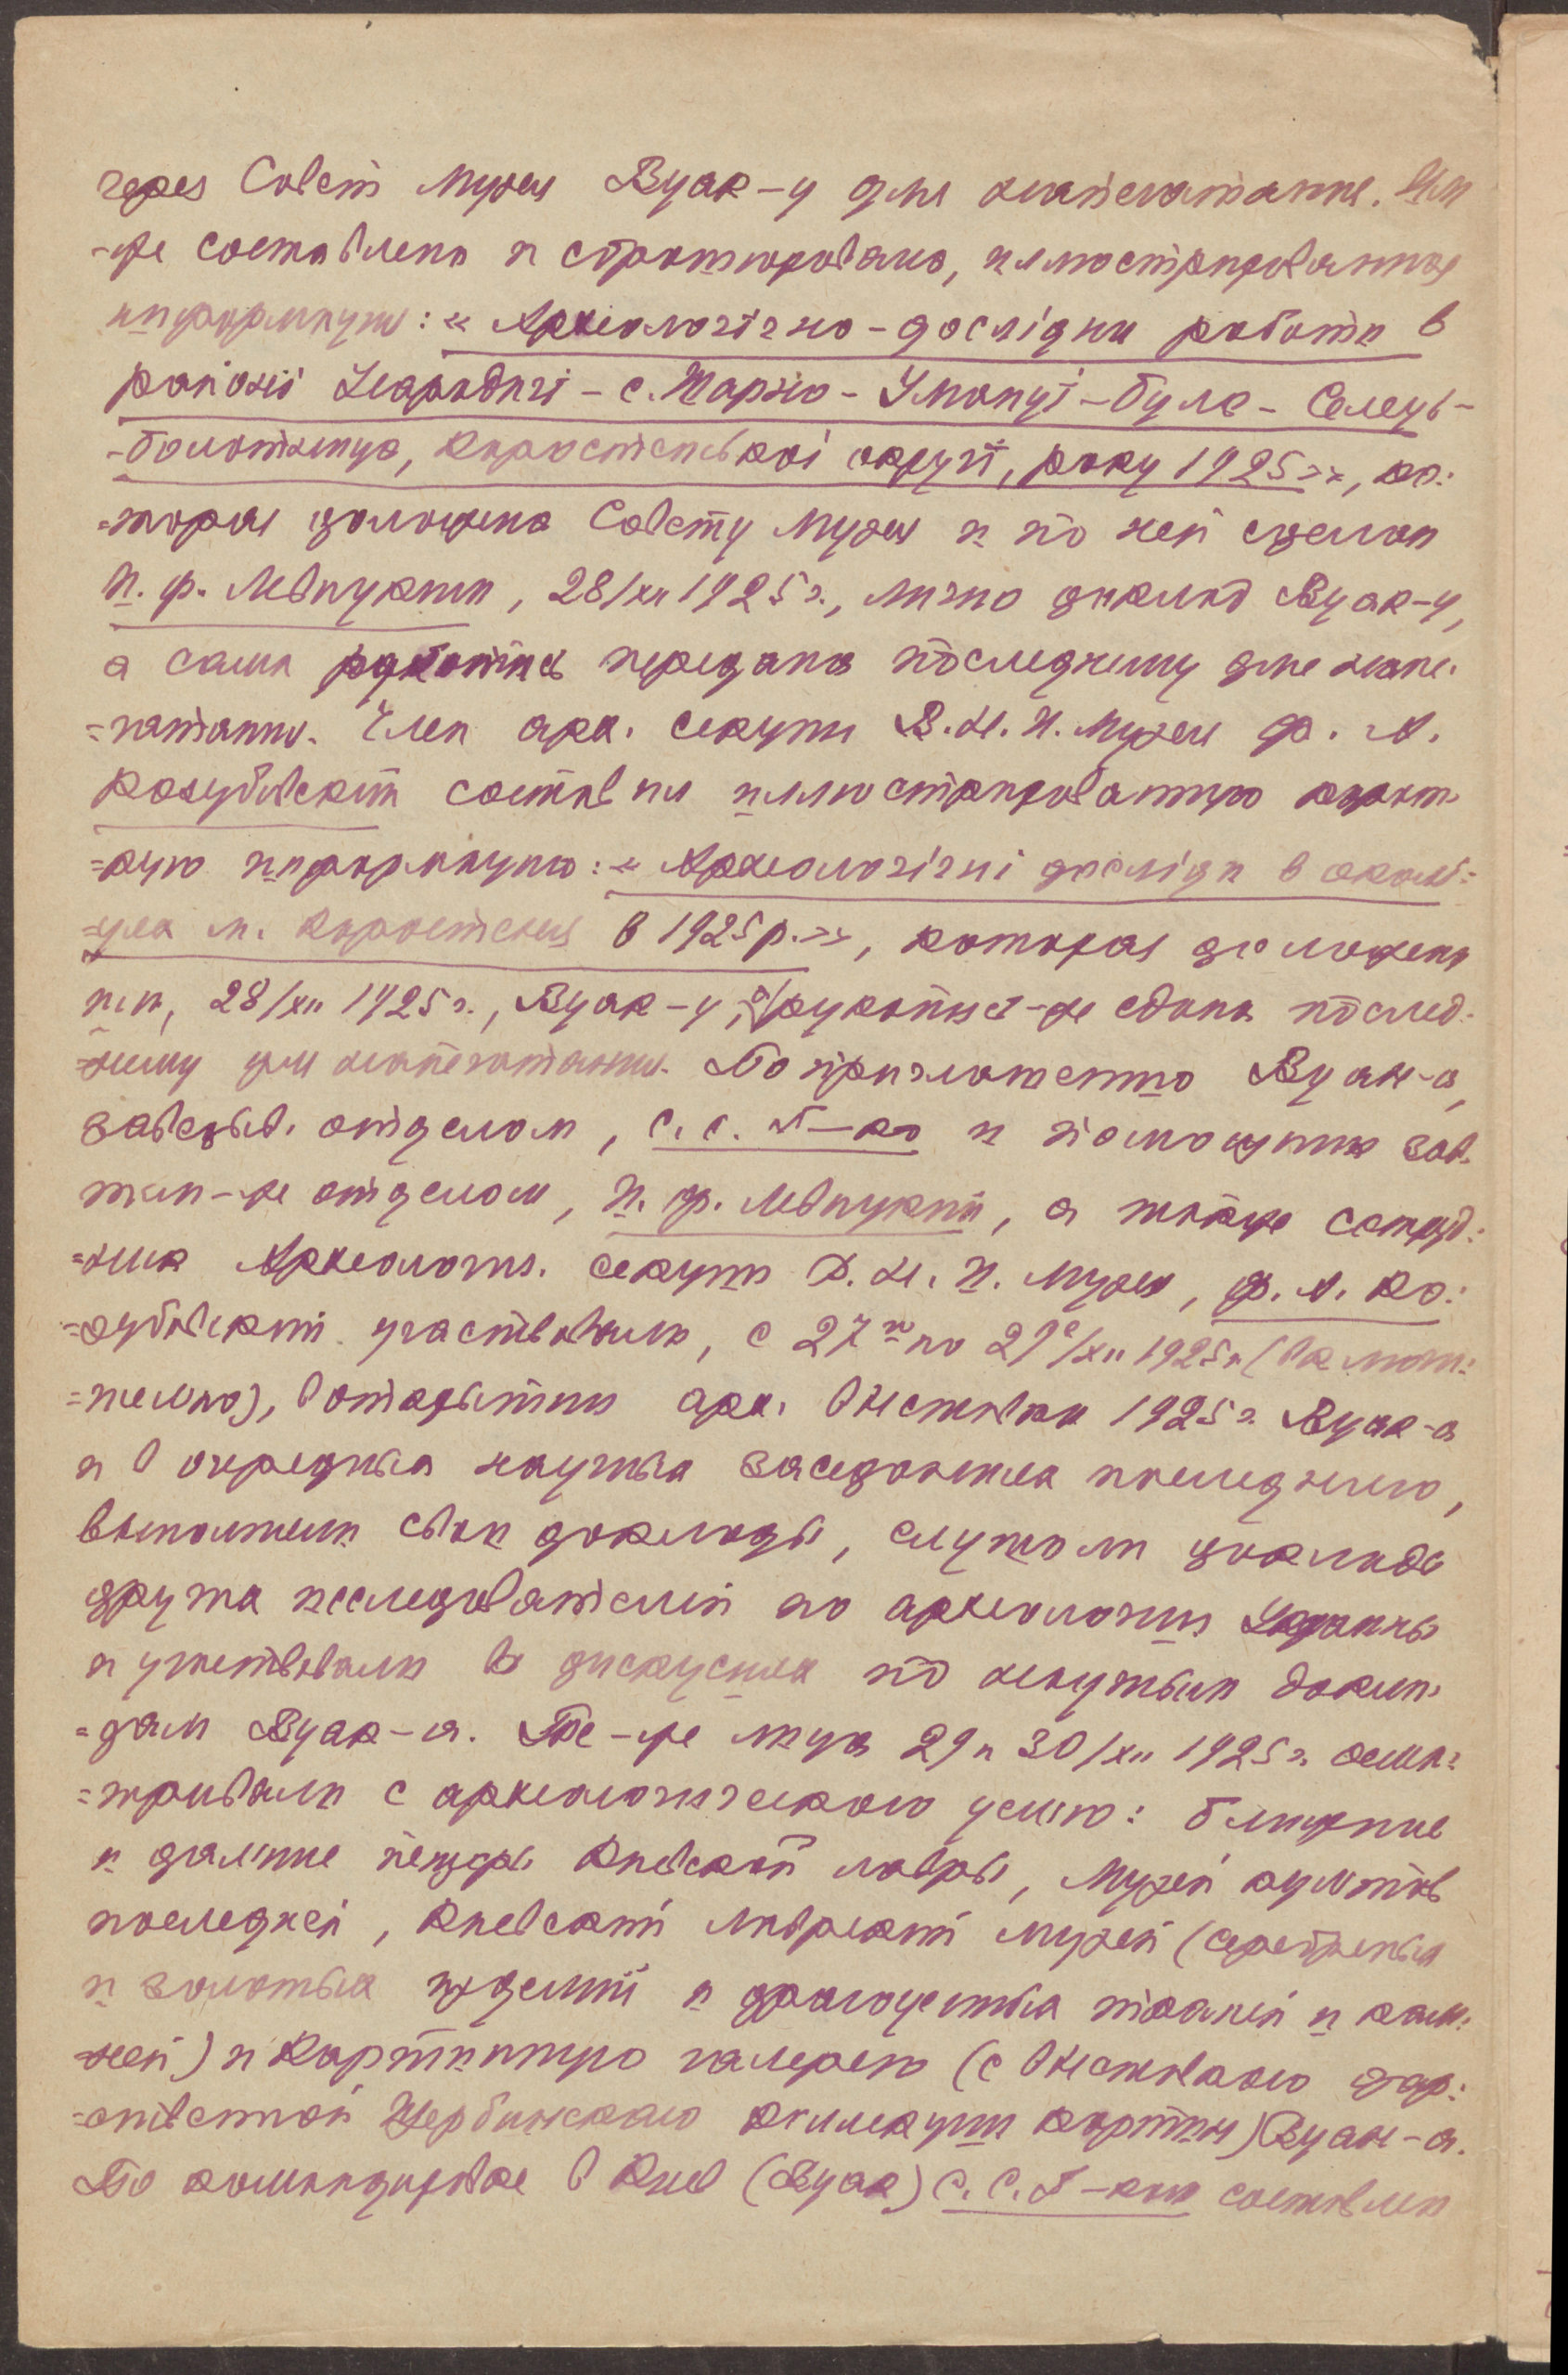 через Совет Музея Вуак-у для напечатания. Им
-же составлена и сброшюрована, иллюстрированная
информация: «Археологічно-дослідчи работи в
районі Народичі - с. Шарно - Уманці - була - Селець-
-болотниця, Коростенської округи, року 1925», ко:
=торая доложена Совету Музея и по ней сделан
И. Ф. Левицким, 28/XII 1925 г., лично доклад Вуак-у,
а сама работа передана последнему для напе:
=чатания. Член арх. секции В. Н. И. Музея Ф. А.
Козубовский составил иллюстрированную корот-
=кую информацию: «Археологічні досліди в околи:
=цях м. Коростеня в 1925 р.», которая доложена
им, 28/XII 1925 г., Вуак-у, а рукопись-же сдана послед:
=нему для напечатания. По приглашению Вуак-а,
заведыв. отделом, С. С. Г-ко и помощник зав.
тем-же отделом, И. Ф. Левицкий, а также сотруд:
=ник Археологич. секции В. Н. И. Музея, Ф. А. Ко:
=зубовский участвовали, с 27го по 29е/XII 1925 г. (включи:
=тельно), в открытии арх. выставки 1925 г. Вуак-а
и в очередных научных заседаниях последнего,
выполнили свои доклады, слушали доклады
других исследователей по археологии Украины
и участвовали в дискусиях по научным докла:
=дам Вуак-а. Те-же лица 29 и 30/XII 1925 г. осма:
=тривали с археологическою целью: ближние
и дальние пещеры Киевской лавры, Музей культов
последней, Киевский Лаврский музей (серебряных
и золотых изделий и драгоценных тканей и кам:
=ней) и Картинную галерею (с выставкою
=ственной Щербинскаго коллекции картин) Вуан-а.
По командировке в Киев (Вуак) С. С. Г-ком составлен